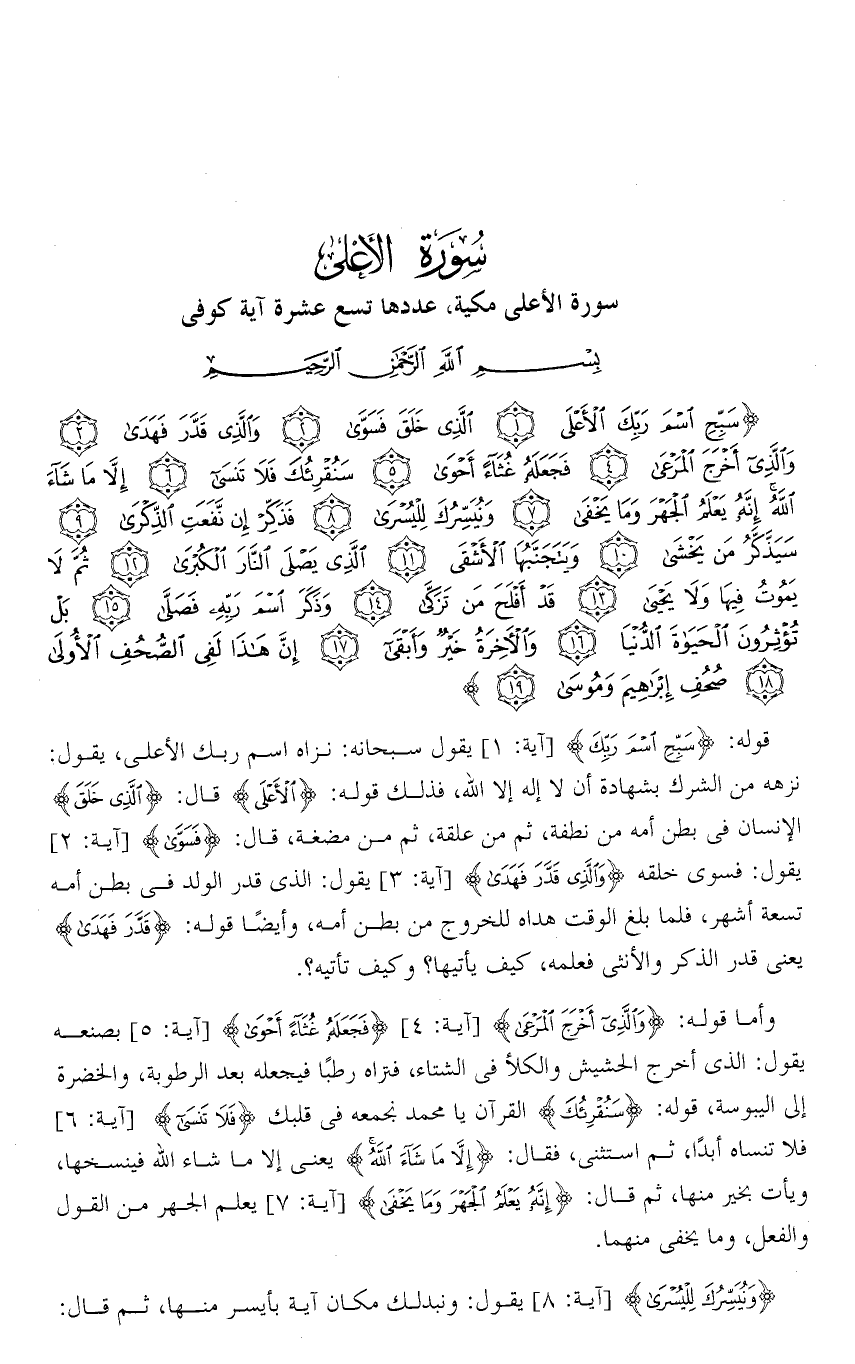 سُورَةُ الأَعْلَىٰ
سورة الأعلى مكية، عددها تسع عشرة آية كوفى
بِسْمِ اللَّهِ الرَّحْمَٰنِ الرَّحِيمِ
﴿سَبِّحِ ٱسْمَ رَبِّكَ ٱلْأَعْلَى ١ ٱلَّذِى خَلَقَ فَسَوَّىٰ ٢ وَٱلَّذِى قَدَّرَ فَهَدَىٰ ٣
وَٱلَّذِىٓ أَخْرَجَ ٱلْمَرْعَىٰ ٤ فَجَعَلَهُۥ غُثَآءً أَحْوَىٰ ٥ سَنُقْرِئُكَ فَلَا تَنسَىٰٓ ٦ إِلَّا مَا شَآءَ
ٱللَّهُۚ إِنَّهُۥ يَعْلَمُ ٱلْجَهْرَ وَمَا يَخْفَىٰ ٧ وَنُيَسِّرُكَ لِلْيُسْرَىٰ ٨ فَذَكِّرْ إِن نَّفَعَتِ ٱلذِّكْرَىٰ ٩
سَيَذَّكَّرُ مَن يَخْشَىٰ ١٠ وَيَتَجَنَّبُهَا ٱلْأَشْقَى ١١ ٱلَّذِى يَصْلَى ٱلنَّارَ ٱلْكُبْرَىٰ ١٢ ثُمَّ لَا
يَمُوتُ فِيهَا وَلَا يَحْيَىٰ ١٣ قَدْ أَفْلَحَ مَن تَزَكَّىٰ ١٤ وَذَكَرَ ٱسْمَ رَبِّهِۦ فَصَلَّىٰ ١٥ بَلْ
تُؤْثِرُونَ ٱلْحَيَوٰةَ ٱلدُّنْيَا ١٦ وَٱلْأَخِرَةُ خَيْرٌ وَأَبْقَىٰٓ ١٧ إِنَّ هَٰذَا لَفِى ٱلصُّحُفِ ٱلْأُولَىٰ
١٨ صُحُفِ إِبْرَٰهِيمَ وَمُوسَىٰ ١٩ ﴾
قوله: ﴿سَبِّحِ ٱسْمَ رَبِّكَ﴾ [آية: ١] يقول سبحانه: نزاه اسم ربك الأعلى، يقول:
نزهه من الشرك بشهادة أن لا إله إلا الله، فذلك قوله: ﴿ٱلْأَعْلَى﴾ قال: ﴿ٱلَّذِى خَلَقَ﴾
الإنسان فى بطن أمه من نطفة، ثم من علقة، ثم من مضغة، قال: ﴿فَسَوَّىٰ﴾ [آية: ٢]
يقول: فسوى خلقه ﴿وَٱلَّذِى قَدَّرَ فَهَدَىٰ﴾ [آية: ٣] يقول: الذى قدر الولد فى بطن أمه
تسعة أشهر، فلما بلغ الوقت هداه للخروج من بطن أمه، وأيضًا قوله: ﴿قَدَّرَ فَهَدَىٰ﴾
يعنى قدر الذكر والأنثى فعلمه، كيف يأتيها؟ وكيف تأتيه؟.
وأما قوله: ﴿وَٱلَّذِىٓ أَخْرَجَ ٱلْمَرْعَىٰ﴾ [آية: ٤] ﴿فَجَعَلَهُۥ غُثَآءً أَحْوَىٰ﴾ [آية: ٥] بصنعه
يقول: الذى أخرج الحشيش والكلأ فى الشتاء، فتراه رطبًا فيجعله بعد الرطوبة، والخضرة
إلى اليبوسة، قوله: ﴿سَنُقْرِئُكَ﴾ القرآن يا محمد نجمعه فى قلبك ﴿فَلَا تَنسَىٰٓ﴾ [آية: ٦]
فلا تنساه أبدًا، ثم استثنى، فقال: ﴿إِلَّا مَا شَآءَ ٱللَّهُۚ﴾ يعنى إلا ما شاء الله فينسخها،
ويأت بخير منها، ثم قال: ﴿إِنَّهُۥ يَعْلَمُ ٱلْجَهْرَ وَمَا يَخْفَىٰ﴾ [آية: ٧] يعلم الجهر من القول
والفعل، وما يخفى منهما.
﴿وَنُيَسِّرُكَ لِلْيُسْرَىٰ﴾ [آية: ٨] يقول: ونبدلك مكان آية بأيسر منها، ثم قال: